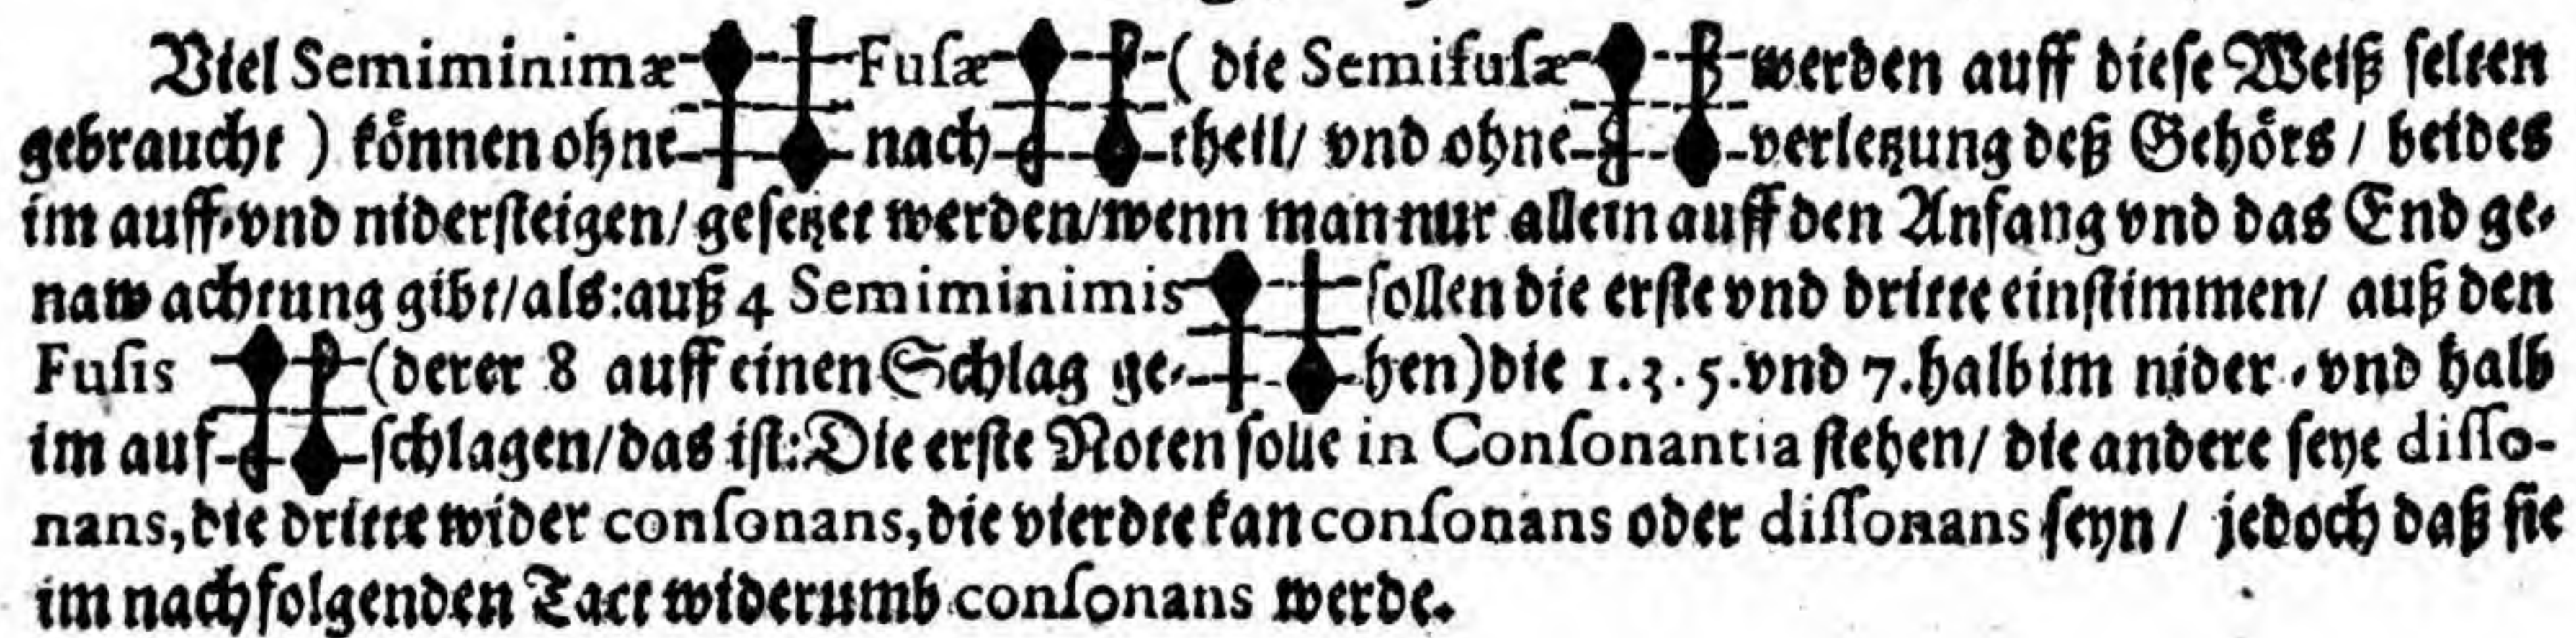 Viel Semiminimæ Fuſæ ( die Semifuſæ werden auff dieſe Weiß ſelten
gebraucht ) können ohne nach theil/ vnd ohne verletzung deß Gehörs / beides
im auff-vnd niderſteigen/ geſetzet werden/wenn man nur allein auff den Anfang vnd das End ge-
naw achtung gibt/als:auß 4 Semiminimis ſollen die erſte vnd dritte einſtimmen/ auß den
Fuſis (derer 8 auff einen Schlag ge- hen)die 1.3.5.vnd 7.halb im nider-vnd halb
im auf ſchlagen/das iſt:Die erſte Noten ſolle in Conſonantia ſtehen/ die andere ſeye diſſo-
nans,die dritte wider conſonans,die vierdte kan conſonans oder diſſonans ſeyn / jedoch daß ſie
im nachfolgenden Tact widerumb conſonans werde.